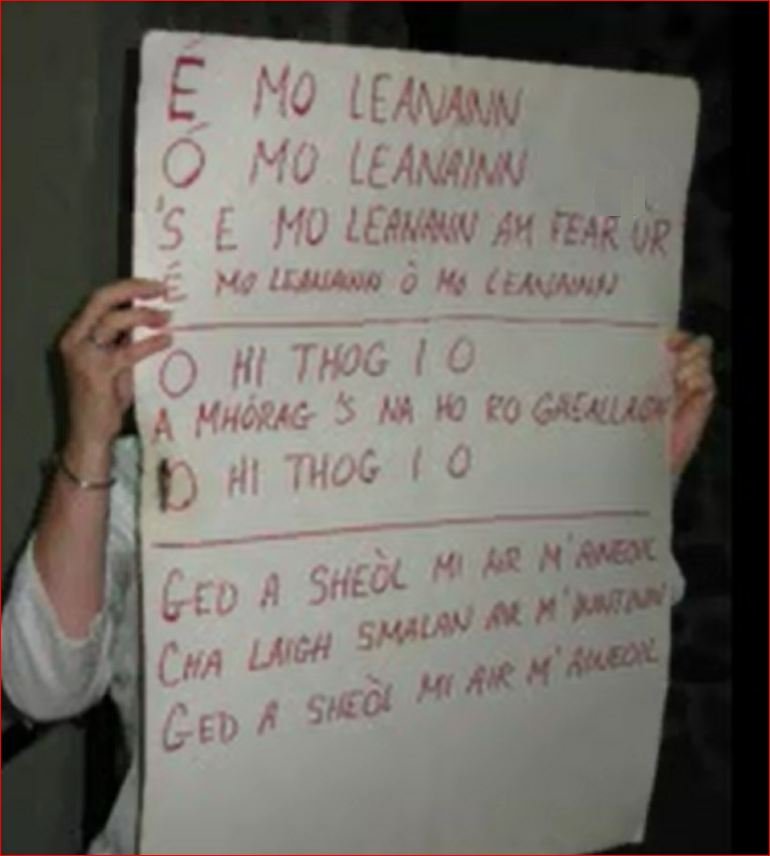 É MO LEANANN
Ó MO LEANAINN
'S E MO LEANANN AM FEAR ÙR
É MO LEANANN Ò MO LEANAINN
O HI THOG I O
A MHÓRAG 'S NA HO RO GHEALLAGH
O HI THOG I O
GED A SHEÒL MI AIR M'AINEOIL
CHA LAIGH SMALAN AIR M'INNTINN
GED A SHEÒL MI AIR M'AINEOIL